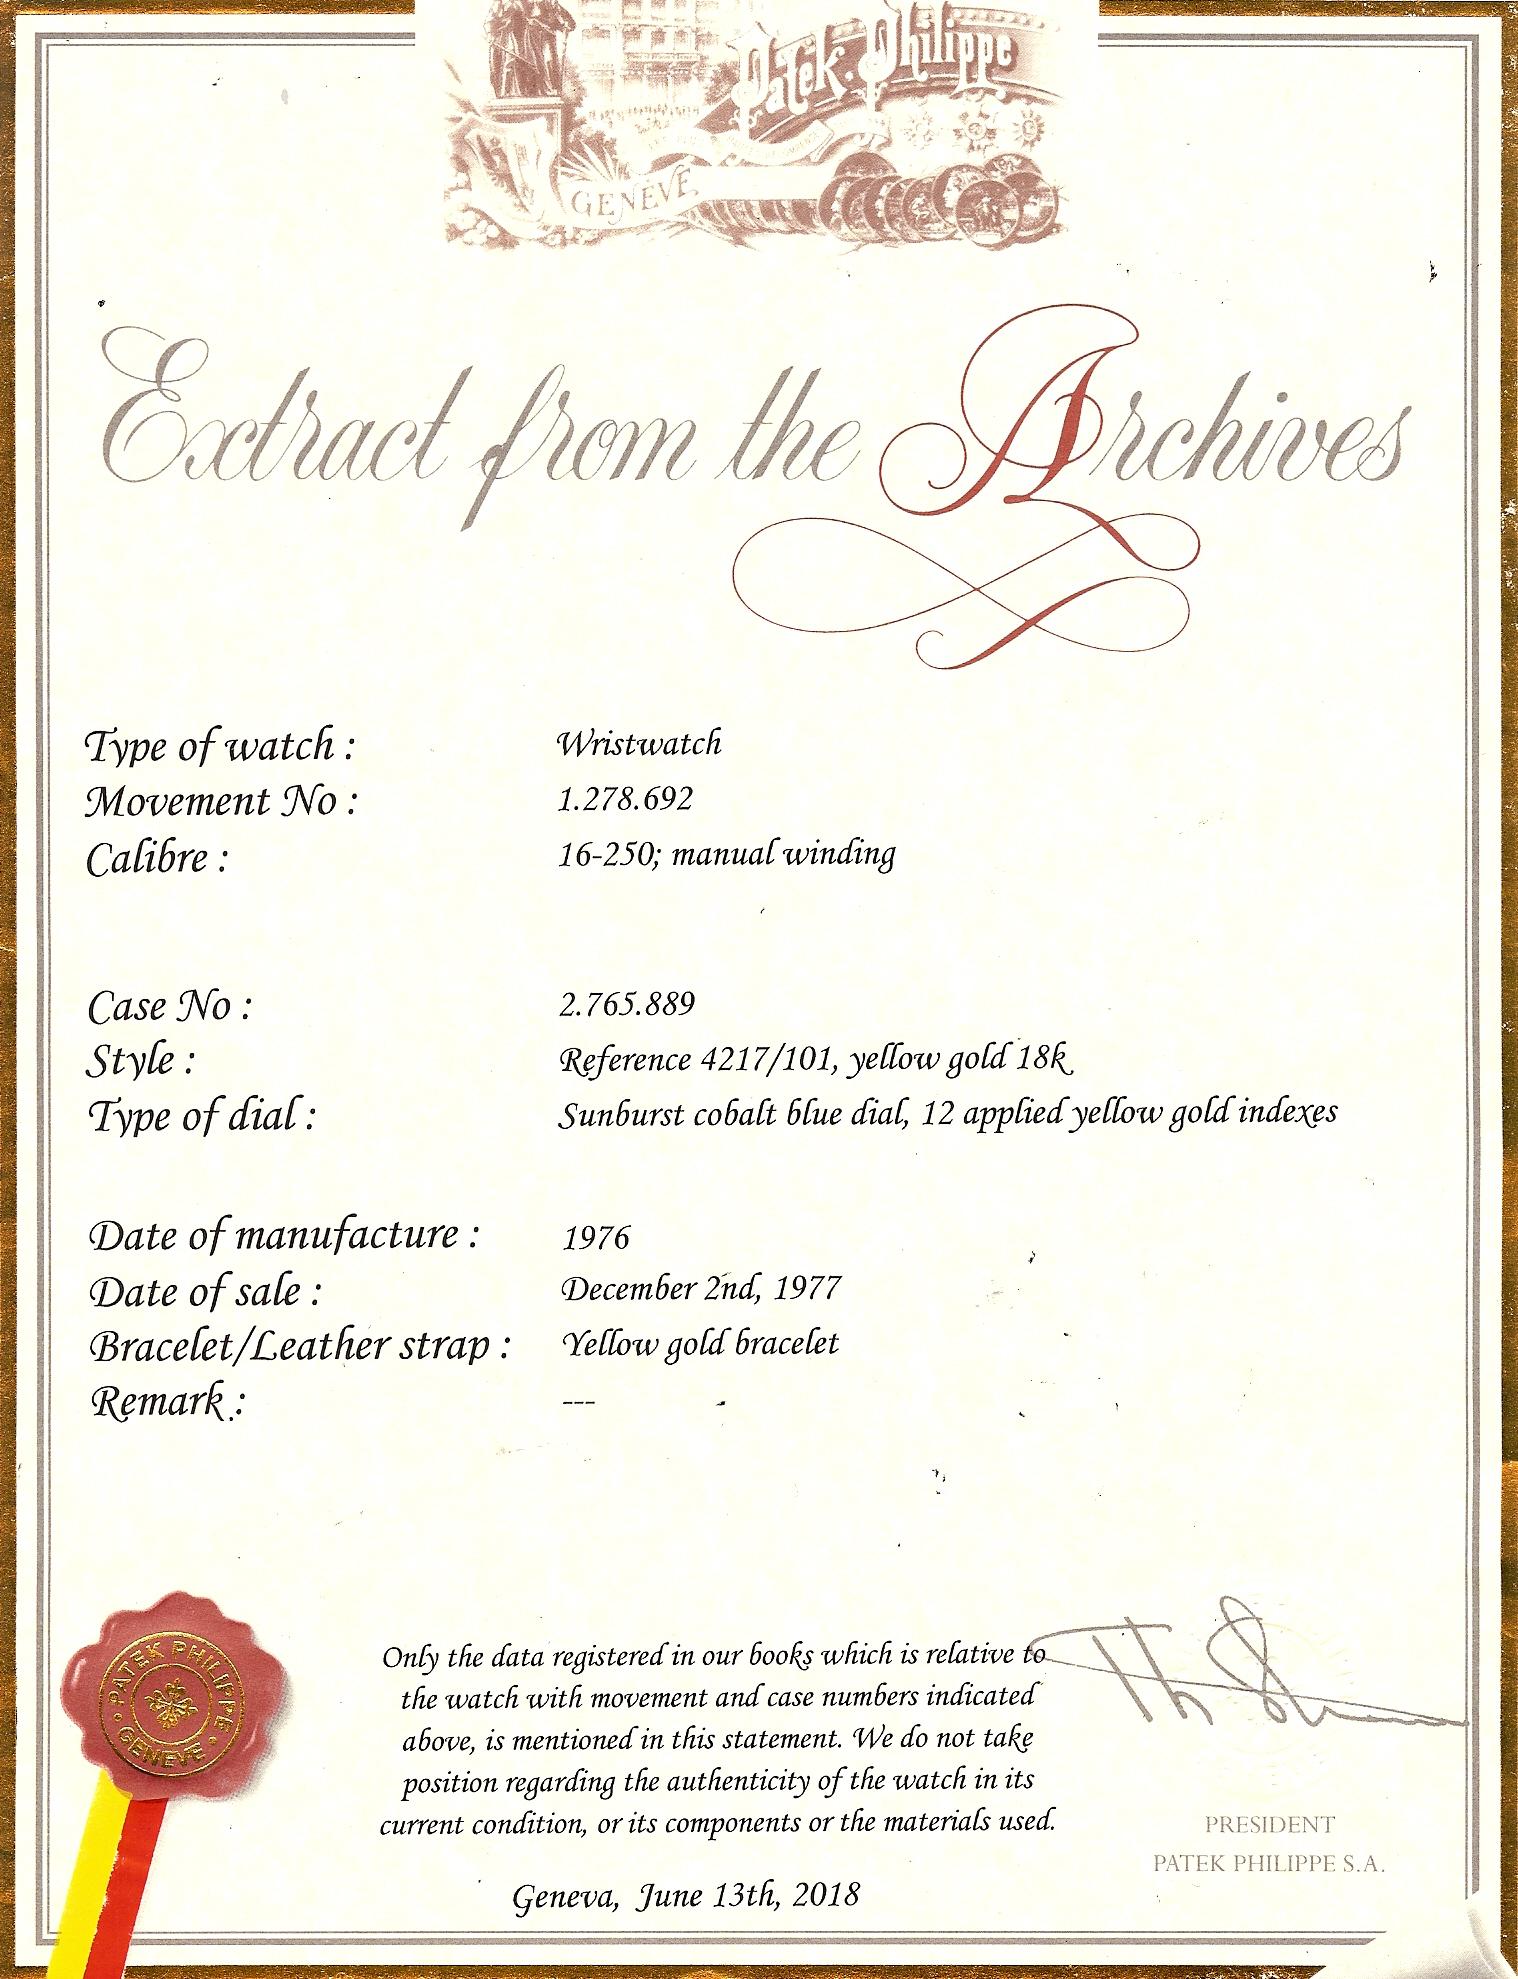 Patek Philippe
GENÈVE
Extract from the Archives
Type of watch : Wristwatch
Movement No : 1.278.692
Calibre : 16-250; manual winding
Case No : 2.765.889
Style : Reference 4217/101, yellow gold 18k
Type of dial : Sunburst cobalt blue dial, 12 applied yellow gold indexes
Date of manufacture : 1976
Date of sale : December 2nd, 1977
Bracelet/Leather strap : Yellow gold bracelet
Remark : ---
Only the data registered in our books which is relative to
the watch with movement and case numbers indicated
above, is mentioned in this statement. We do not take
position regarding the authenticity of the watch in its
current condition, or its components or the materials used.
Geneva, June 13th, 2018
PATEK PHILIPPE
GENEVE
PRESIDENT
PATEK PHILIPPE S.A.